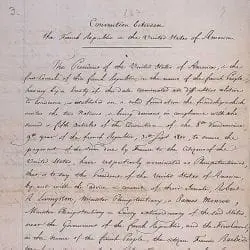 3.
Convention between
the French Republic & the United States of America
The President of the United States of America, & the
first Consul of the french Republic in the name of the french People,
having by a treaty of this date terminated all difficulties relative
to Louisiana, & established on a solid foundation the friendship which
unites the two Nations & being desirous in compliance with the
second & fifth Articles of the Convention of the 8th Vendemiaire
9th year of the french Republic, 30th Sept. 1800, to secure the
payment of the sum due by France to the citizens of the
United States, have respectively nominated as Plenipotentiaries,
that is to say the President of the United States of America
by and with the advice & consent of their Senate, Robert
R. Livingston, Minister Plenipotentiary & James Monroe,
Minister Plenipotentiary & Envoy extraordinary of the said States
near the Government of the french Republic, and the First Consul
in the Name of the french People, the citizen Francis Barbé